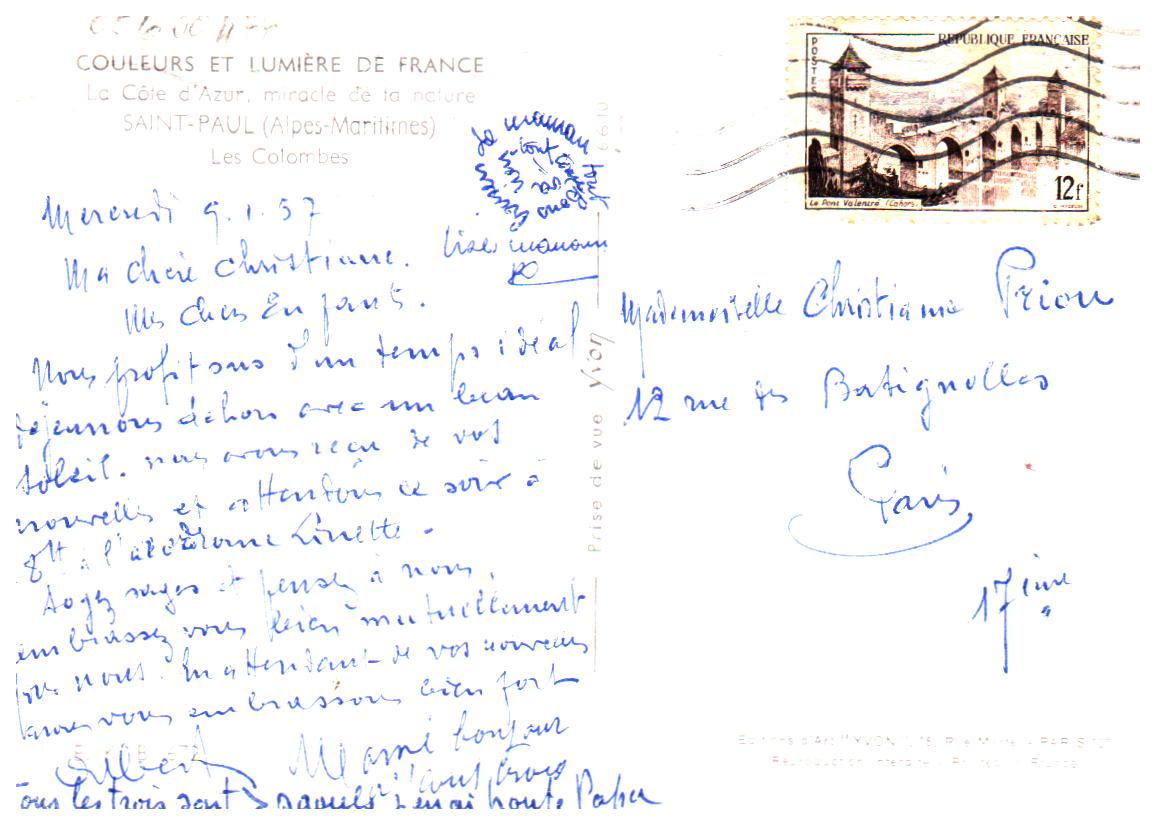 COULEURS ET LUMIÈRE DE FRANCE
La Côte d'Azur, miracle de la nature
SAINT-PAUL (Alpes-Maritimes)
Les Colombes
Mercredi 9.1.57
Ma chère Christiane.
Mes chers Enfants.
Nous profitons d'un temps idéal
déjeunons dehors avec un beau
soleil. nous avons reçu de vos
nouvelles et attendons ce soir à
8H à l'aérodrome Linette.
Soyez sages et pensez à nous,
embrassez vous bien mutuellement
pour nous. En attendant de vos nouvelles
nous vous embrassons bien fort
Albert
Mamé bonjour
à tous trois
tous les trois sont
Papa
maman
tout va
Lise maman
Prise de vue Yvon
6610
REPUBLIQUE FRANÇAISE
POSTES
12f
Le Pont Valentré (Cahors)
Mademoiselle Christiane Priou
12 rue des Batignolles
Paris
17ème
Editions d'Art "YVON", 15, Rue Martel - PARIS-10e